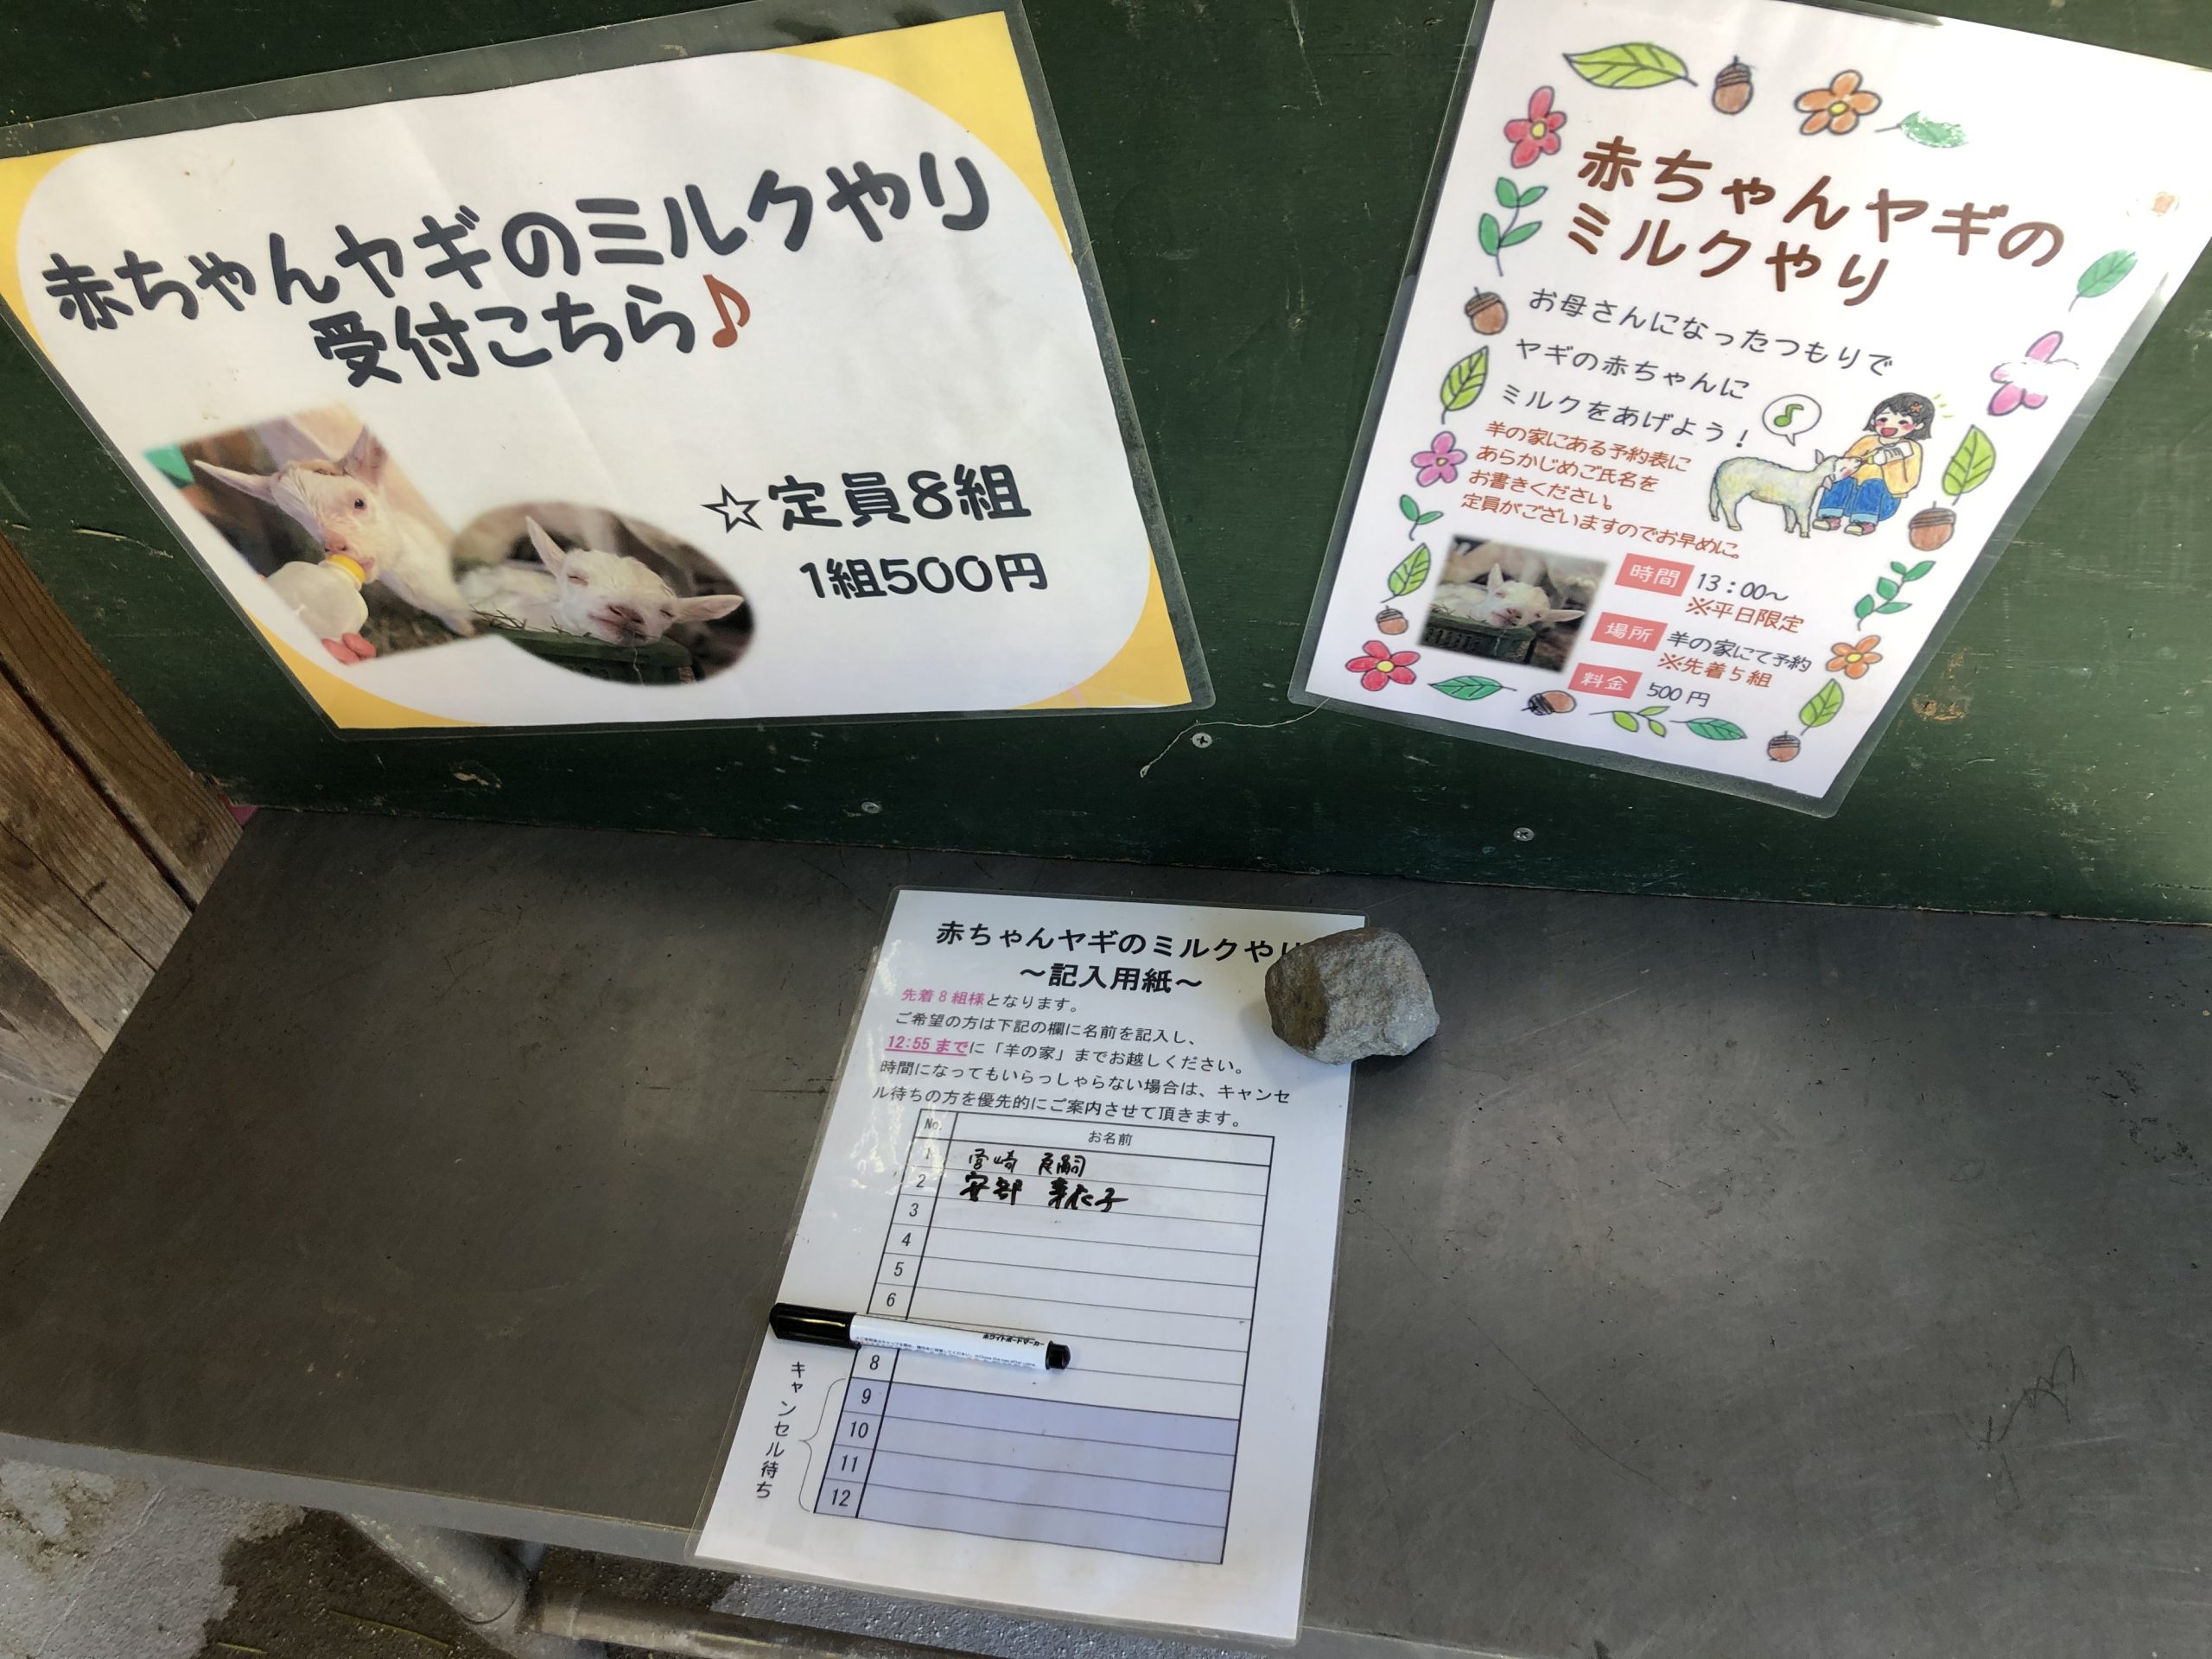 赤ちゃんヤギのミルクやり
受付こちら♪
☆定員8組
1組500円
赤ちゃんヤギの
ミルクやり
お母さんになったつもりで
ヤギの赤ちゃんに
ミルクをあげよう!
羊の家にある予約表に
あらかじめご氏名を
お書きください。
定員がございますのでお早めに。
時間 13:00~
※平日限定
場所 羊の家にて予約
※先着5組
料金 500円
赤ちゃんヤギのミルクやり
~記入用紙~
先着8組様となります。
ご希望の方は下記の欄に名前を記入し、
12:55までに「羊の家」までお越しください。
時間になってもいらっしゃらない場合は、キャンセ
ル待ちの方を優先的にご案内させて頂きます。
No. お名前
1 宮崎
2 安部
3
4
5
6
ホワイトボードマーカー
8
9
10
11
12
キャンセル待ち